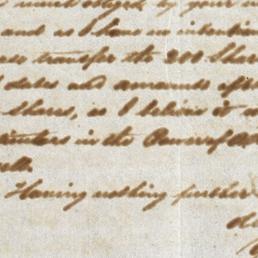 much obliged by your
and as I have no intention
transfer the 200 Shar
dates and amounts
shares, as I believe it
in the Power of
Having nothing further